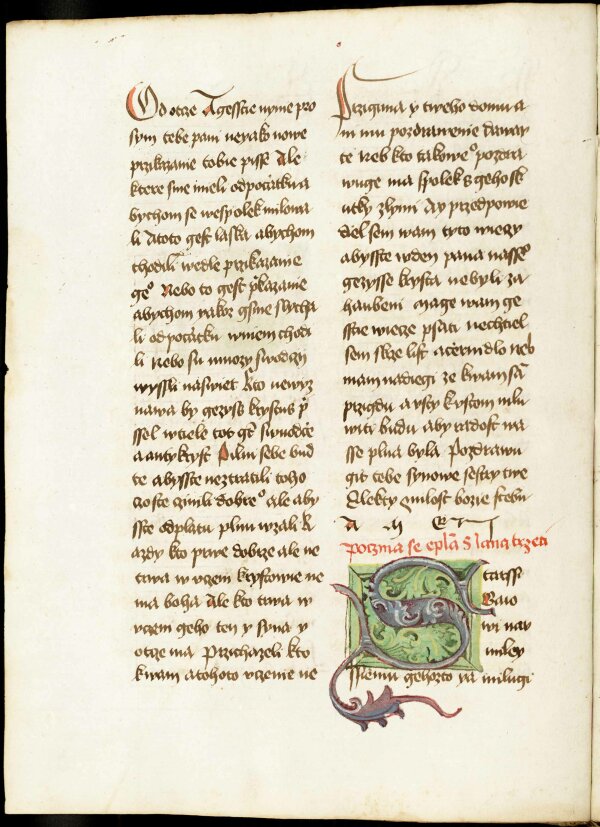 Od otze A gesstie nyme pro
sym tebe pani neyako nowe
przikazanie tobie pisse Ale
ktere sme imeli odpoczatku a
bychom se wespolek milowa
li Atoto gest laska abychom
chodili wedle przikazanie
geº Nebo to gest przikazanie
abychom yakoz gsme slycha
li odpoczatku wniem chodi
li Nebo su mnozy swodczy
wyssli naswiet kto newyz
nawa by gezyss krystus p
ssel wtiele tot ge swuodce
a antykryst Pilni sebe bud
te abysste neztratili toho
czoste czinili dobreº ale aby
sste odplatu plnu wzali k
azdy kto prwe dobrze ale ne
trwa w uczeni krystowie ne
ma boha Ale kto trwa w
uczeni geho ten y syna y
otze ma Przichazeli kto
kwam a tohoto uczenie ne
przigima y tweho domu a
ni mu pozdrawenie daway
te Neb kto takoweº pozdra
wuge ma spolek s geho sk
utky zlymi Ay przedpowie
diel sem wam tyto wieczy
abysste wden pana nasseº
gezysse krysta nebyli za
hanbeni Mage wam ge
sstie wiecze psati nechtiel
sem skrze list a czernidlo neb
mam nadiegi ze kwam sa
przigdu a usty kustom mlu
witi budu aby radost wa
sse plna byla Pozdrawu
git tebe synowe sestry twe
Elekty Milost bozie stebu
A M E N
Poczina se epla S Jana trzeti
Starssi
Gaio
wi nay
miley
ssiemu gehozto ya milugi